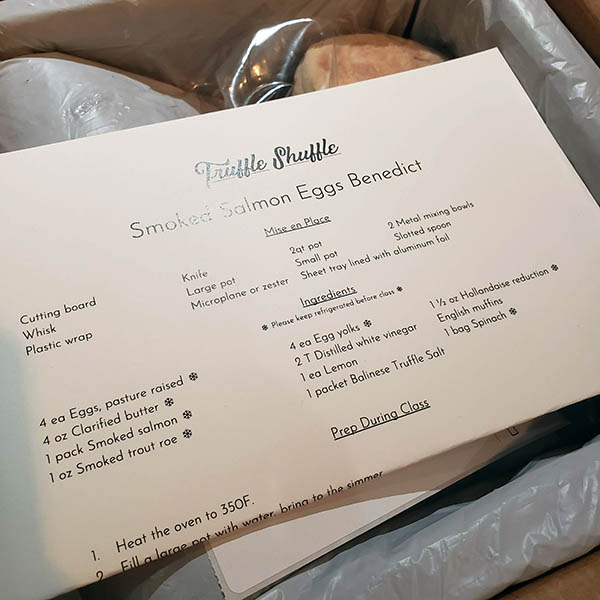 Truffle Shuffle
Smoked Salmon Eggs Benedict
Mise en Place
Cutting board
Whisk
Plastic wrap
Knife
Large pot
Microplane or zester
2qt pot
Small pot
Sheet tray lined with aluminum foil
2 Metal mixing bowls
Slotted spoon
Ingredients
❄ Please keep refrigerated before class ❄
4 ea Eggs, pasture raised ❄
4 oz Clarified butter ❄
1 pack Smoked salmon ❄
1 oz Smoked trout roe ❄
4 ea Egg yolks ❄
2 T Distilled white vinegar
1 ea Lemon
1 packet Balinese Truffle Salt
1 ½ oz Hollandaise reduction ❄
English muffins
1 bag Spinach ❄
Prep During Class
1. Heat the oven to 350F.
2. Fill a large pot with water, bring to the simmer